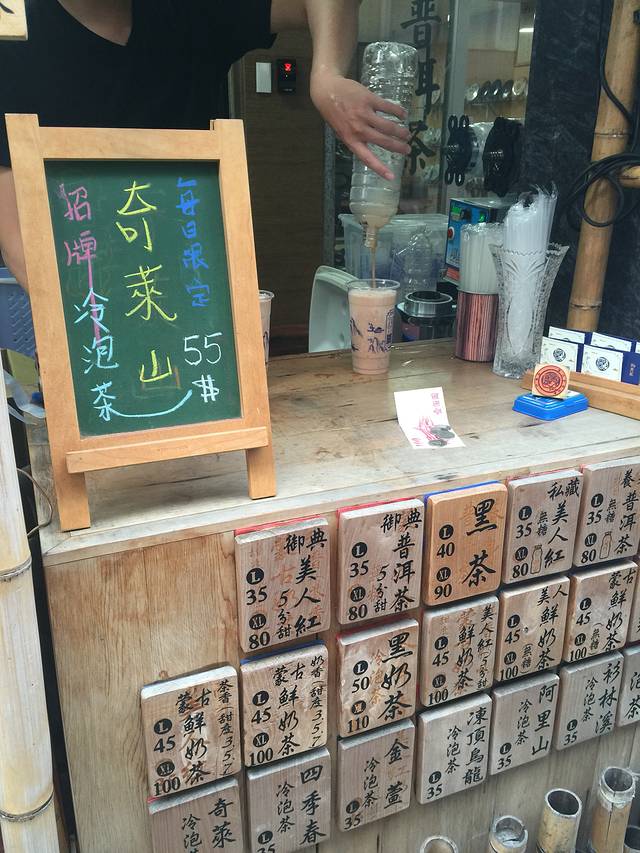 每日限定
奇萊山
招牌
冷泡茶
55
普洱茶
御典美人紅
5分甜
L
35
XL
80
御典普洱茶
5分甜
L
35
XL
80
黑茶
L
40
XL
90
私藏美人紅
無糖
L
35
XL
80
養
普洱茶
無糖
L
35
XL
80
茶香(甜度3.5.7
蒙古鮮奶茶
L
45
XL
100
奶香(甜度3.5.7
蒙古鮮奶茶
L
45
XL
100
黑奶茶
L
50
XL
110
美人紅
鮮奶茶
5分甜
L
45
XL
100
美人
鮮奶茶
(無糖
L
45
XL
100
蒙古
鮮奶茶
(無糖
L
45
XL
100
奇萊
冷泡茶
四季春
冷泡茶
L
35
金萱
冷泡茶
L
35
凍頂烏龍
冷泡茶
L
35
阿里山
冷泡茶
L
35
杉林溪
冷泡茶
L
35